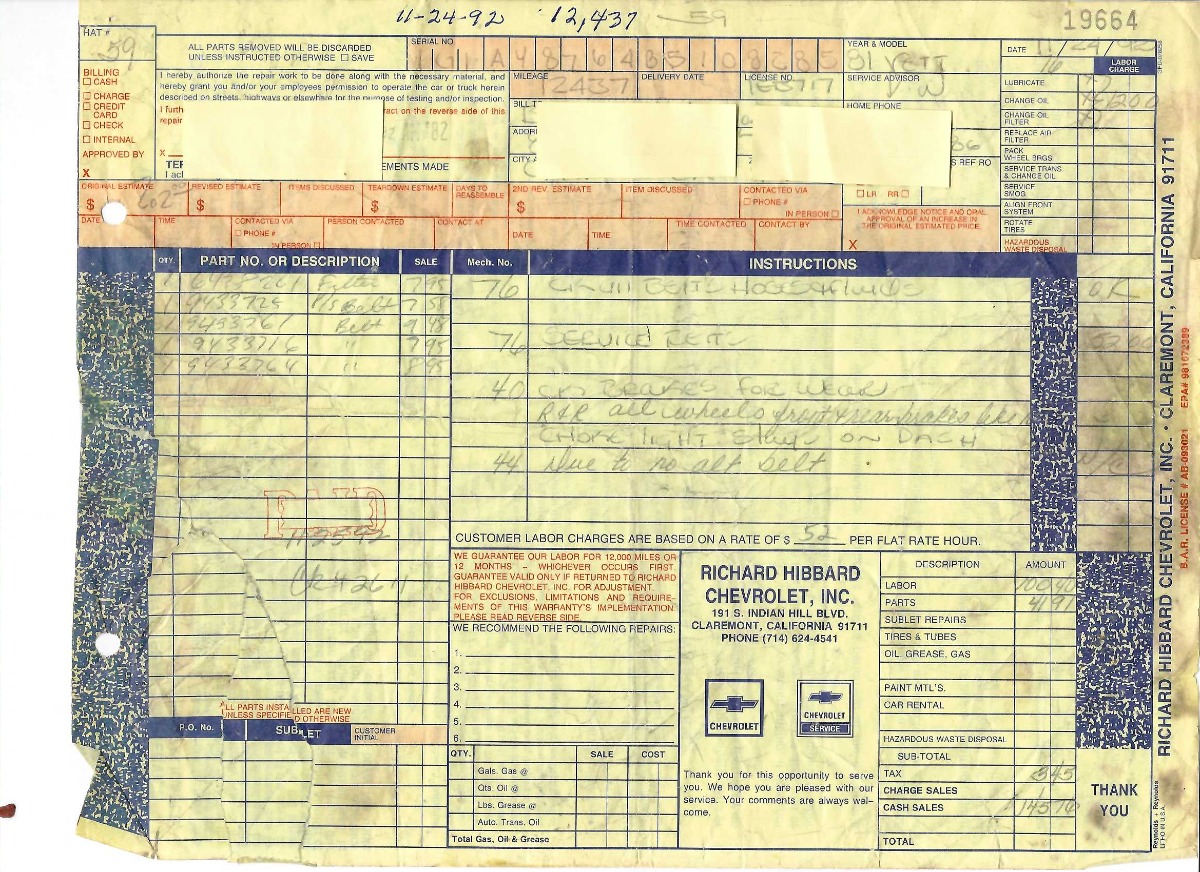 11-24-92 12,437 59
19664
HAT #
59
ALL PARTS REMOVED WILL BE DISCARDED
UNLESS INSTRUCTED OTHERWISE ☐ SAVE
SERIAL NO.
YEAR & MODEL
81 VETT
DATE 11/24/92
LABOR CHARGE
BILLING
☐ CASH
☐ CHARGE
☐ CREDIT CARD
☐ CHECK
☐ INTERNAL
APPROVED BY
X
I hereby authorize the repair work to be done along with the necessary material, and
hereby grant you and/or your employees permission to operate the car or truck herein
described on streets, highways or elsewhere for the purpose of testing and/or inspection.
I furth
ract on the reverse side of this
repair
X
TER
EMENTS MADE
I acl
MILEAGE
12437
DELIVERY DATE
LICENSE NO.
SERVICE ADVISOR
BILL T
HOME PHONE
ADDR
CITY
S REF RO
LUBRICATE
CHANGE OIL
CHANGE OIL FILTER
REPLACE AIR FILTER
PACK WHEEL BRGS
SERVICE TRANS & CHANGE OIL
SERVICE SMOG
ALIGN FRONT SYSTEM
ROTATE TIRES
HAZARDOUS WASTE DISPOSAL
ORIGINAL ESTIMATE
$
REVISED ESTIMATE
$
ITEMS DISCUSSED
TEARDOWN ESTIMATE
$
DAYS TO REASSEMBLE
2ND REV. ESTIMATE
$
ITEM DISCUSSED
CONTACTED VIA
☐ PHONE #
IN PERSON ☐
☐ LR RR ☐
DATE
TIME
CONTACTED VIA
☐ PHONE #
IN PERSON ☐
PERSON CONTACTED
CONTACT AT
DATE
TIME
TIME CONTACTED
CONTACT BY
I ACKNOWLEDGE NOTICE AND ORAL
APPROVAL OF AN INCREASE IN
THE ORIGINAL ESTIMATED PRICE.
X
QTY. PART NO. OR DESCRIPTION SALE Mech. No. INSTRUCTIONS
Filter 7.95
1 9433725 P/S Belt 7.58
1 9433761 Belt 9.98
1 9433716 " 7.95
1 9433764 " 8.95
76
OK
76 SERVICE
40 CK BRAKES FOR WEAR
R&R all wheels front & rear brakes like
CHOKE LIGHT Stays ON DASH
44 Due to no alt belt
PAID
CUSTOMER LABOR CHARGES ARE BASED ON A RATE OF $ 52 PER FLAT RATE HOUR.
WE GUARANTEE OUR LABOR FOR 12,000 MILES OR
12 MONTHS – WHICHEVER OCCURS FIRST.
GUARANTEE VALID ONLY IF RETURNED TO RICHARD
HIBBARD CHEVROLET, INC. FOR ADJUSTMENT.
FOR EXCLUSIONS, LIMITATIONS AND REQUIRE-
MENTS OF THIS WARRANTY'S IMPLEMENTATION
PLEASE READ REVERSE SIDE.
WE RECOMMEND THE FOLLOWING REPAIRS:
1.
2.
3.
4.
5.
6.
RICHARD HIBBARD
CHEVROLET, INC.
191 S. INDIAN HILL BLVD.
CLAREMONT, CALIFORNIA 91711
PHONE (714) 624-4541
CHEVROLET
CHEVROLET
SERVICE
DESCRIPTION AMOUNT
LABOR
PARTS 41 91
SUBLET REPAIRS
TIRES & TUBES
OIL, GREASE, GAS
PAINT MTL'S.
CAR RENTAL
HAZARDOUS WASTE DISPOSAL
SUB-TOTAL
TAX 3 45
CHARGE SALES
CASH SALES 145 76
TOTAL
ALL PARTS INSTALLED ARE NEW
UNLESS SPECIFIED OTHERWISE
P.O. No.
SUBLET
CUSTOMER INITIAL
QTY. SALE COST
Gals. Gas @
Qts. Oil @
Lbs. Grease @
Auto. Trans. Oil
Total Gas, Oil & Grease
Thank you for this opportunity to serve
you. We hope you are pleased with our
service. Your comments are always wel-
come.
THANK
YOU
RICHARD HIBBARD CHEVROLET, INC. • CLAREMONT, CALIFORNIA 91711
B.A.R. LICENSE # AB-093021 EPA# 981672389
Reynolds + Reynolds
LITHO IN U.S.A.